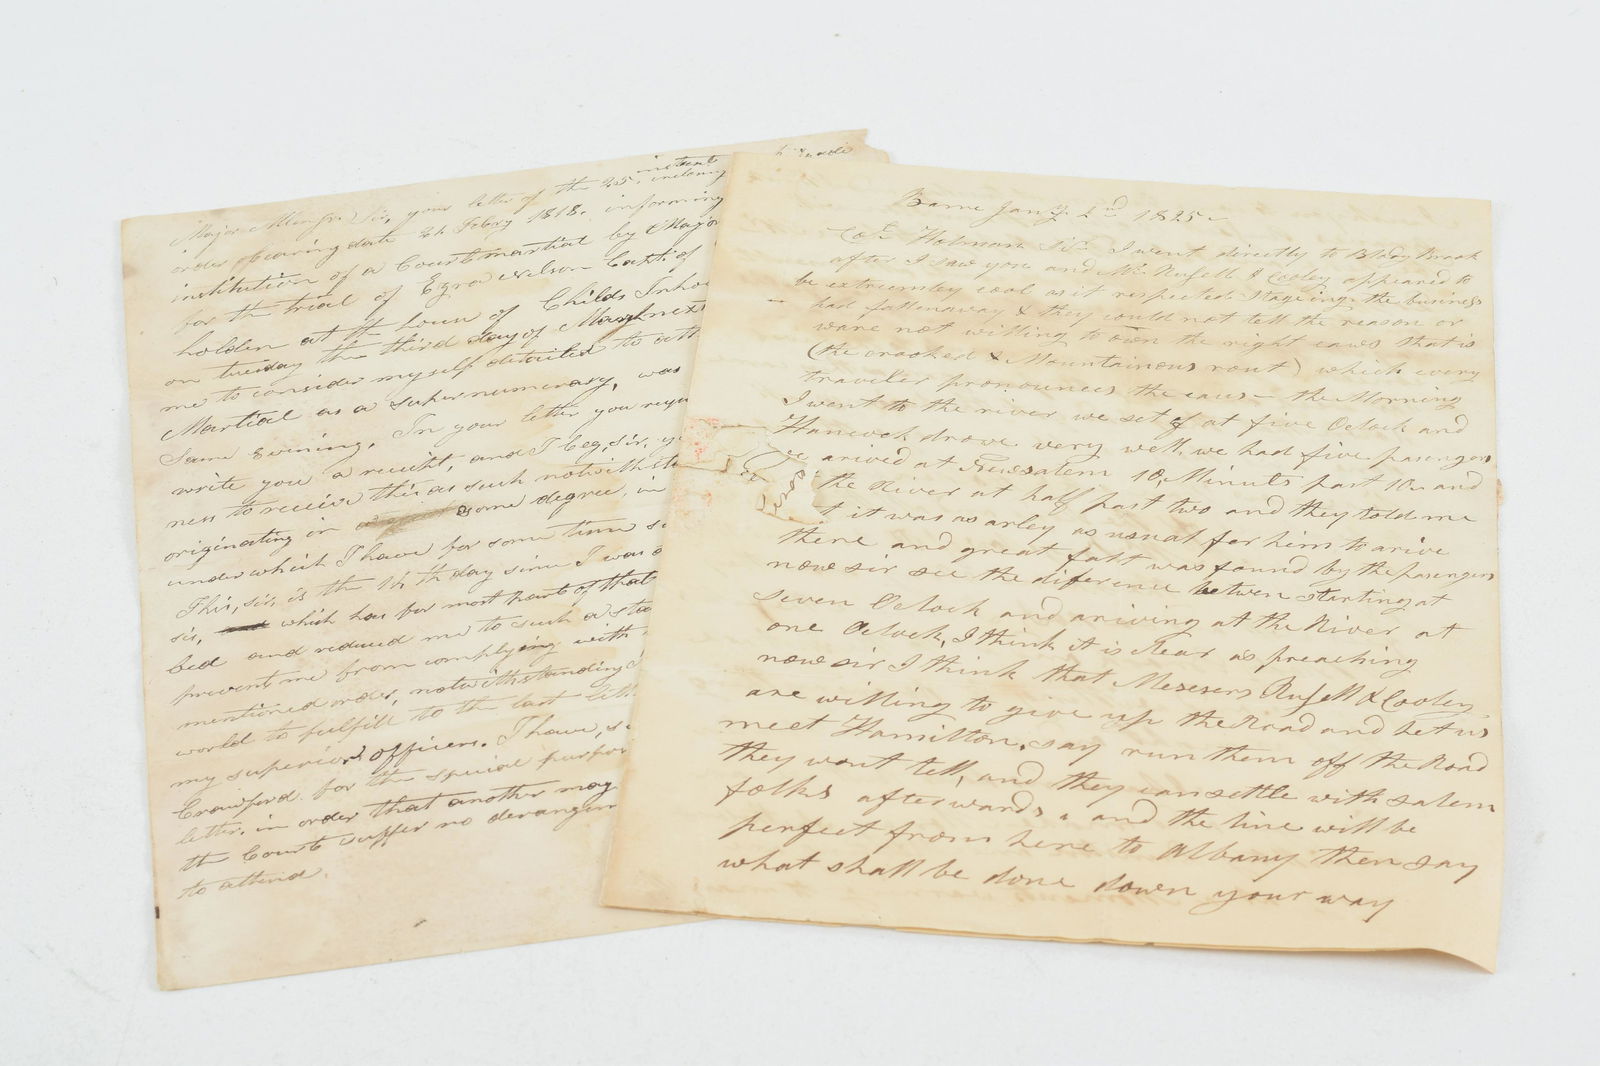 instant
Major Mengro Sir, your letter of the 25, inclosing
order bearing date 24 Febry 1818. informing
institution of a Court martial by Major
for the trial of Ezra Nelson Capt. of
holden at the house of Childs Inho
on tuesday the third day of March next
me to consider myself detailed to att
Martial as a supernumerary, was
Same Evening. In your letter you requ
write you a receipt, and I beg, sir, y
ness to receive this as such notwithsta
originating in some degree, in
under which I have for some time su
This, sir, is the 14th day since I was
sir, which has for most part of that
bed and reduced me to such a sta
prevent me from complying with
mentioned order, notwithstanding
world to fulfill to the last lett
my superior officers. I have, s
Crawford for the special purpo
letter, in order that another may
the Court suffer no derangem
to attend.
Barre Jany 2nd 1825
Col Holman Sir I went directly to Bloody Brook
after I saw you and Mr Rusell & Cooley appeared to
be extreumley cool as it respected Stageing the business
had fallen away & they could not tell the reason or
ware not willing to own the right caws that is
(the crooked & Mountainous rout) which every
traveller pronounces the caus - the Morning
I went to the river we set of at five Oclock and
Hancock drove very well, we had five pasengers
we arived at Jerusalem 10, Minuts past 10 and
the River at half past two and they told me
t it was as arley as usual for him to arive
there and great falt was found by the pasengers
now sir see the diference betwen starting at
seven Oclock and ariving at the River at
one Oclock, I think it is Clear as preaching
now sir I think that Mesesers Rusell & Cooley
are willing to give up the Road and let us
meet Hamilton, say run them off the Road
they wont tell, and they can settle with salem
folks afterwards, and the line will be
perfect from here to Albany then say
what shall be done down your way